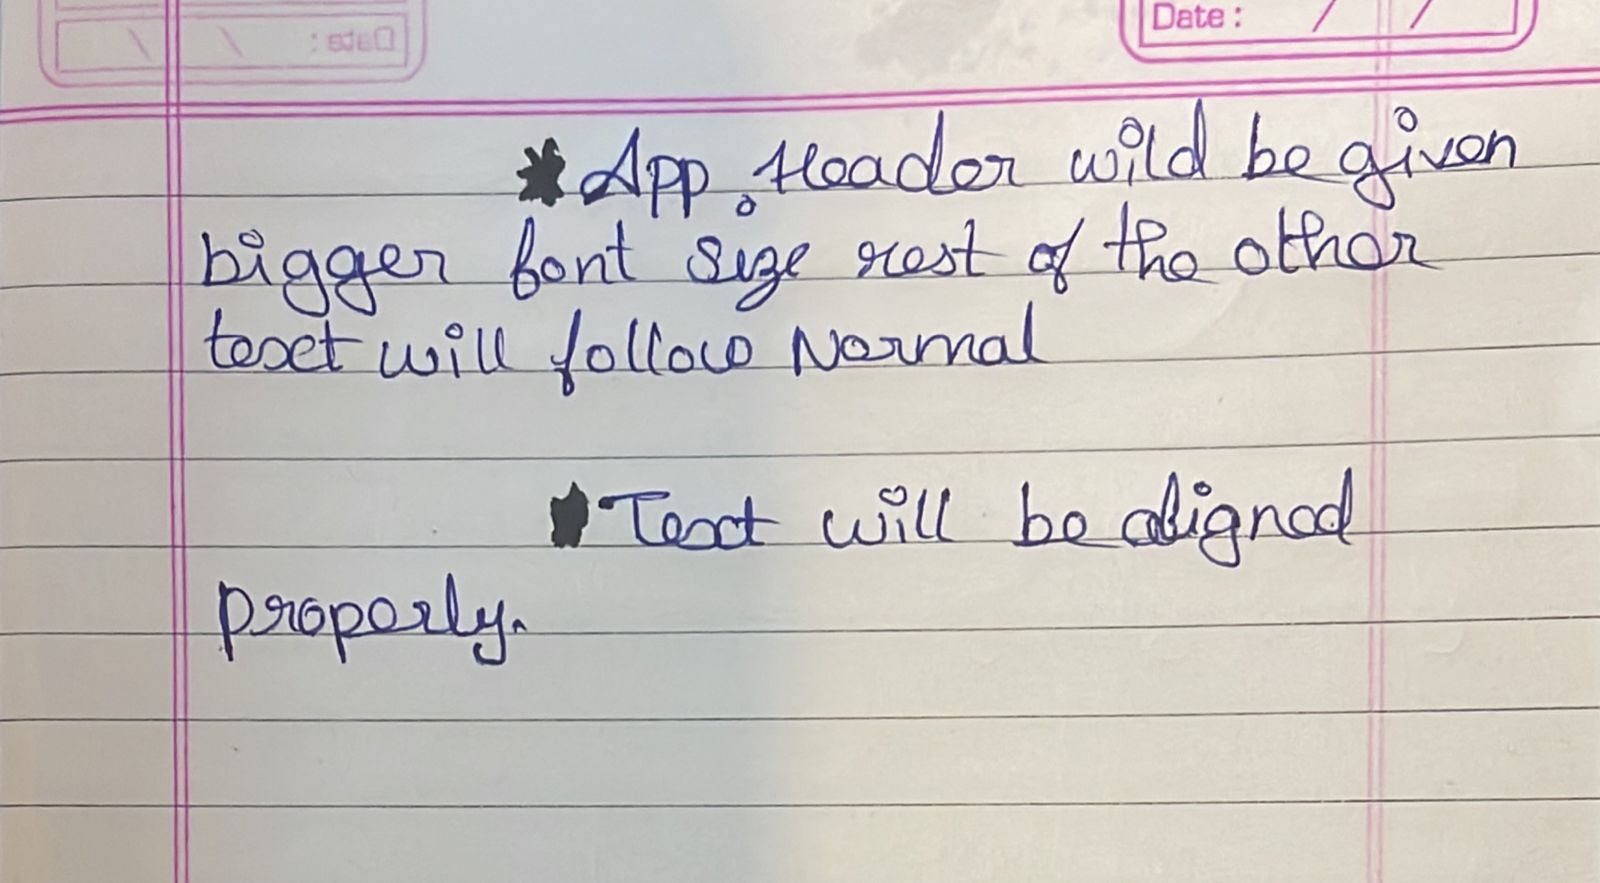 Date : / /
* App Header will be given
bigger font size rest of the other
text will follow Normal
Text will be aligned
properly.